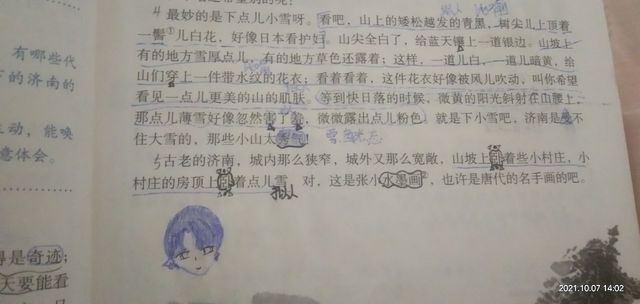 有哪些代
下的济南的
主动，能唤
意体会。
得是奇迹；
天要能看
拟人
4 最妙的是下点儿小雪呀。看吧，山上的矮松越发的青黑，树尖儿上顶着
一髻①儿白花，好像日本看护妇。山尖全白了，给蓝天镶上一道银边。山坡上
有的地方雪厚点儿，有的地方草色还露着；这样，一道儿白，一道儿暗黄，给
山们穿上一件带水纹的花衣；看着看着，这件花衣好像被风儿吹动，叫你希望
看见一点儿更美的山的肌肤。等到快日落的时候，微黄的阳光斜射在山腰上，
那点儿薄雪好像忽然害了羞，微微露出点儿粉色。就是下小雪吧，济南是受不
住大雪的，那些小山太秀气！
5 古老的济南，城内那么狭窄，城外又那么宽敞，山坡上卧着些小村庄，小
村庄的房顶上卧着点儿雪，对，这是张小水墨画②，也许是唐代的名手画的吧。
拟人
2021.10.07 14:02